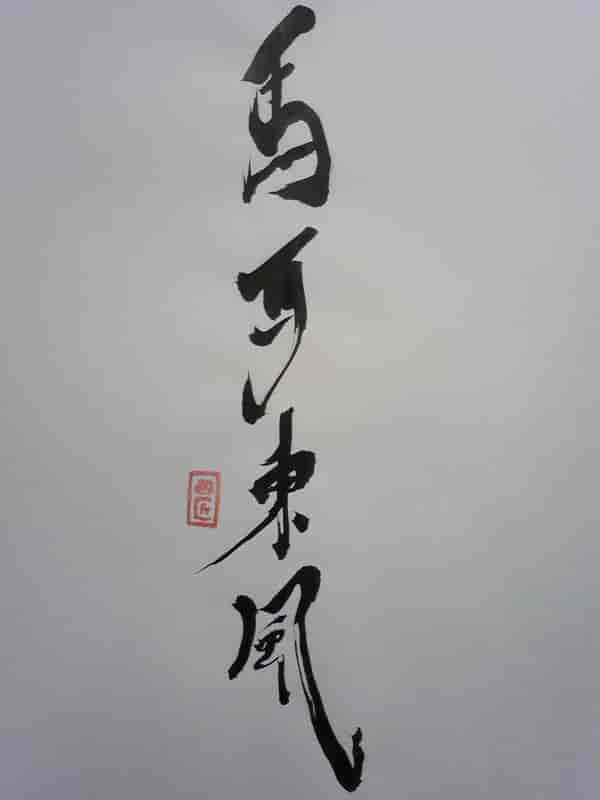 馬耳東風